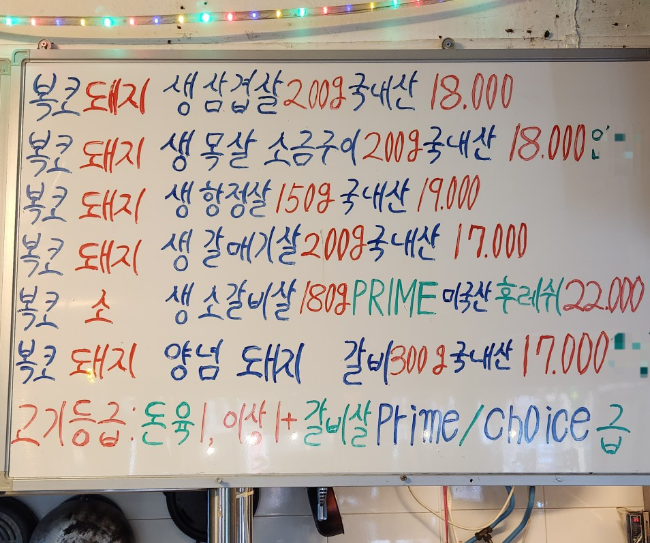 복코 돼지 생 삼겹살 200g 국내산 18.000
복코 돼지 생 목살 소금구이 200g 국내산 18.000인
복코 돼지 생 항정살 150g 국내산 19.000
복코 돼지 생 갈매기살 200g 국내산 17.000
복코 소 생 소갈비살 180g PRIME 미국산 후레쉬 22.000
복코 돼지 양념 돼지 갈비 300g 국내산 17.000
고기등급: 돈육 1, 이상 1+ 갈비살 Prime/choice 급